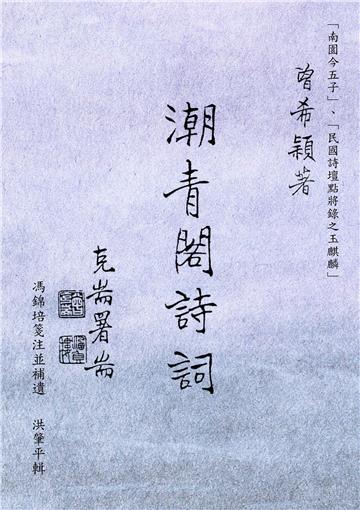 「南園今五子」、「民國詩壇點將錄之玉麒麟」
曾希穎著
潮青閣詩詞
克耑署耑
馮錦培箋注並補遺 洪肇平輯